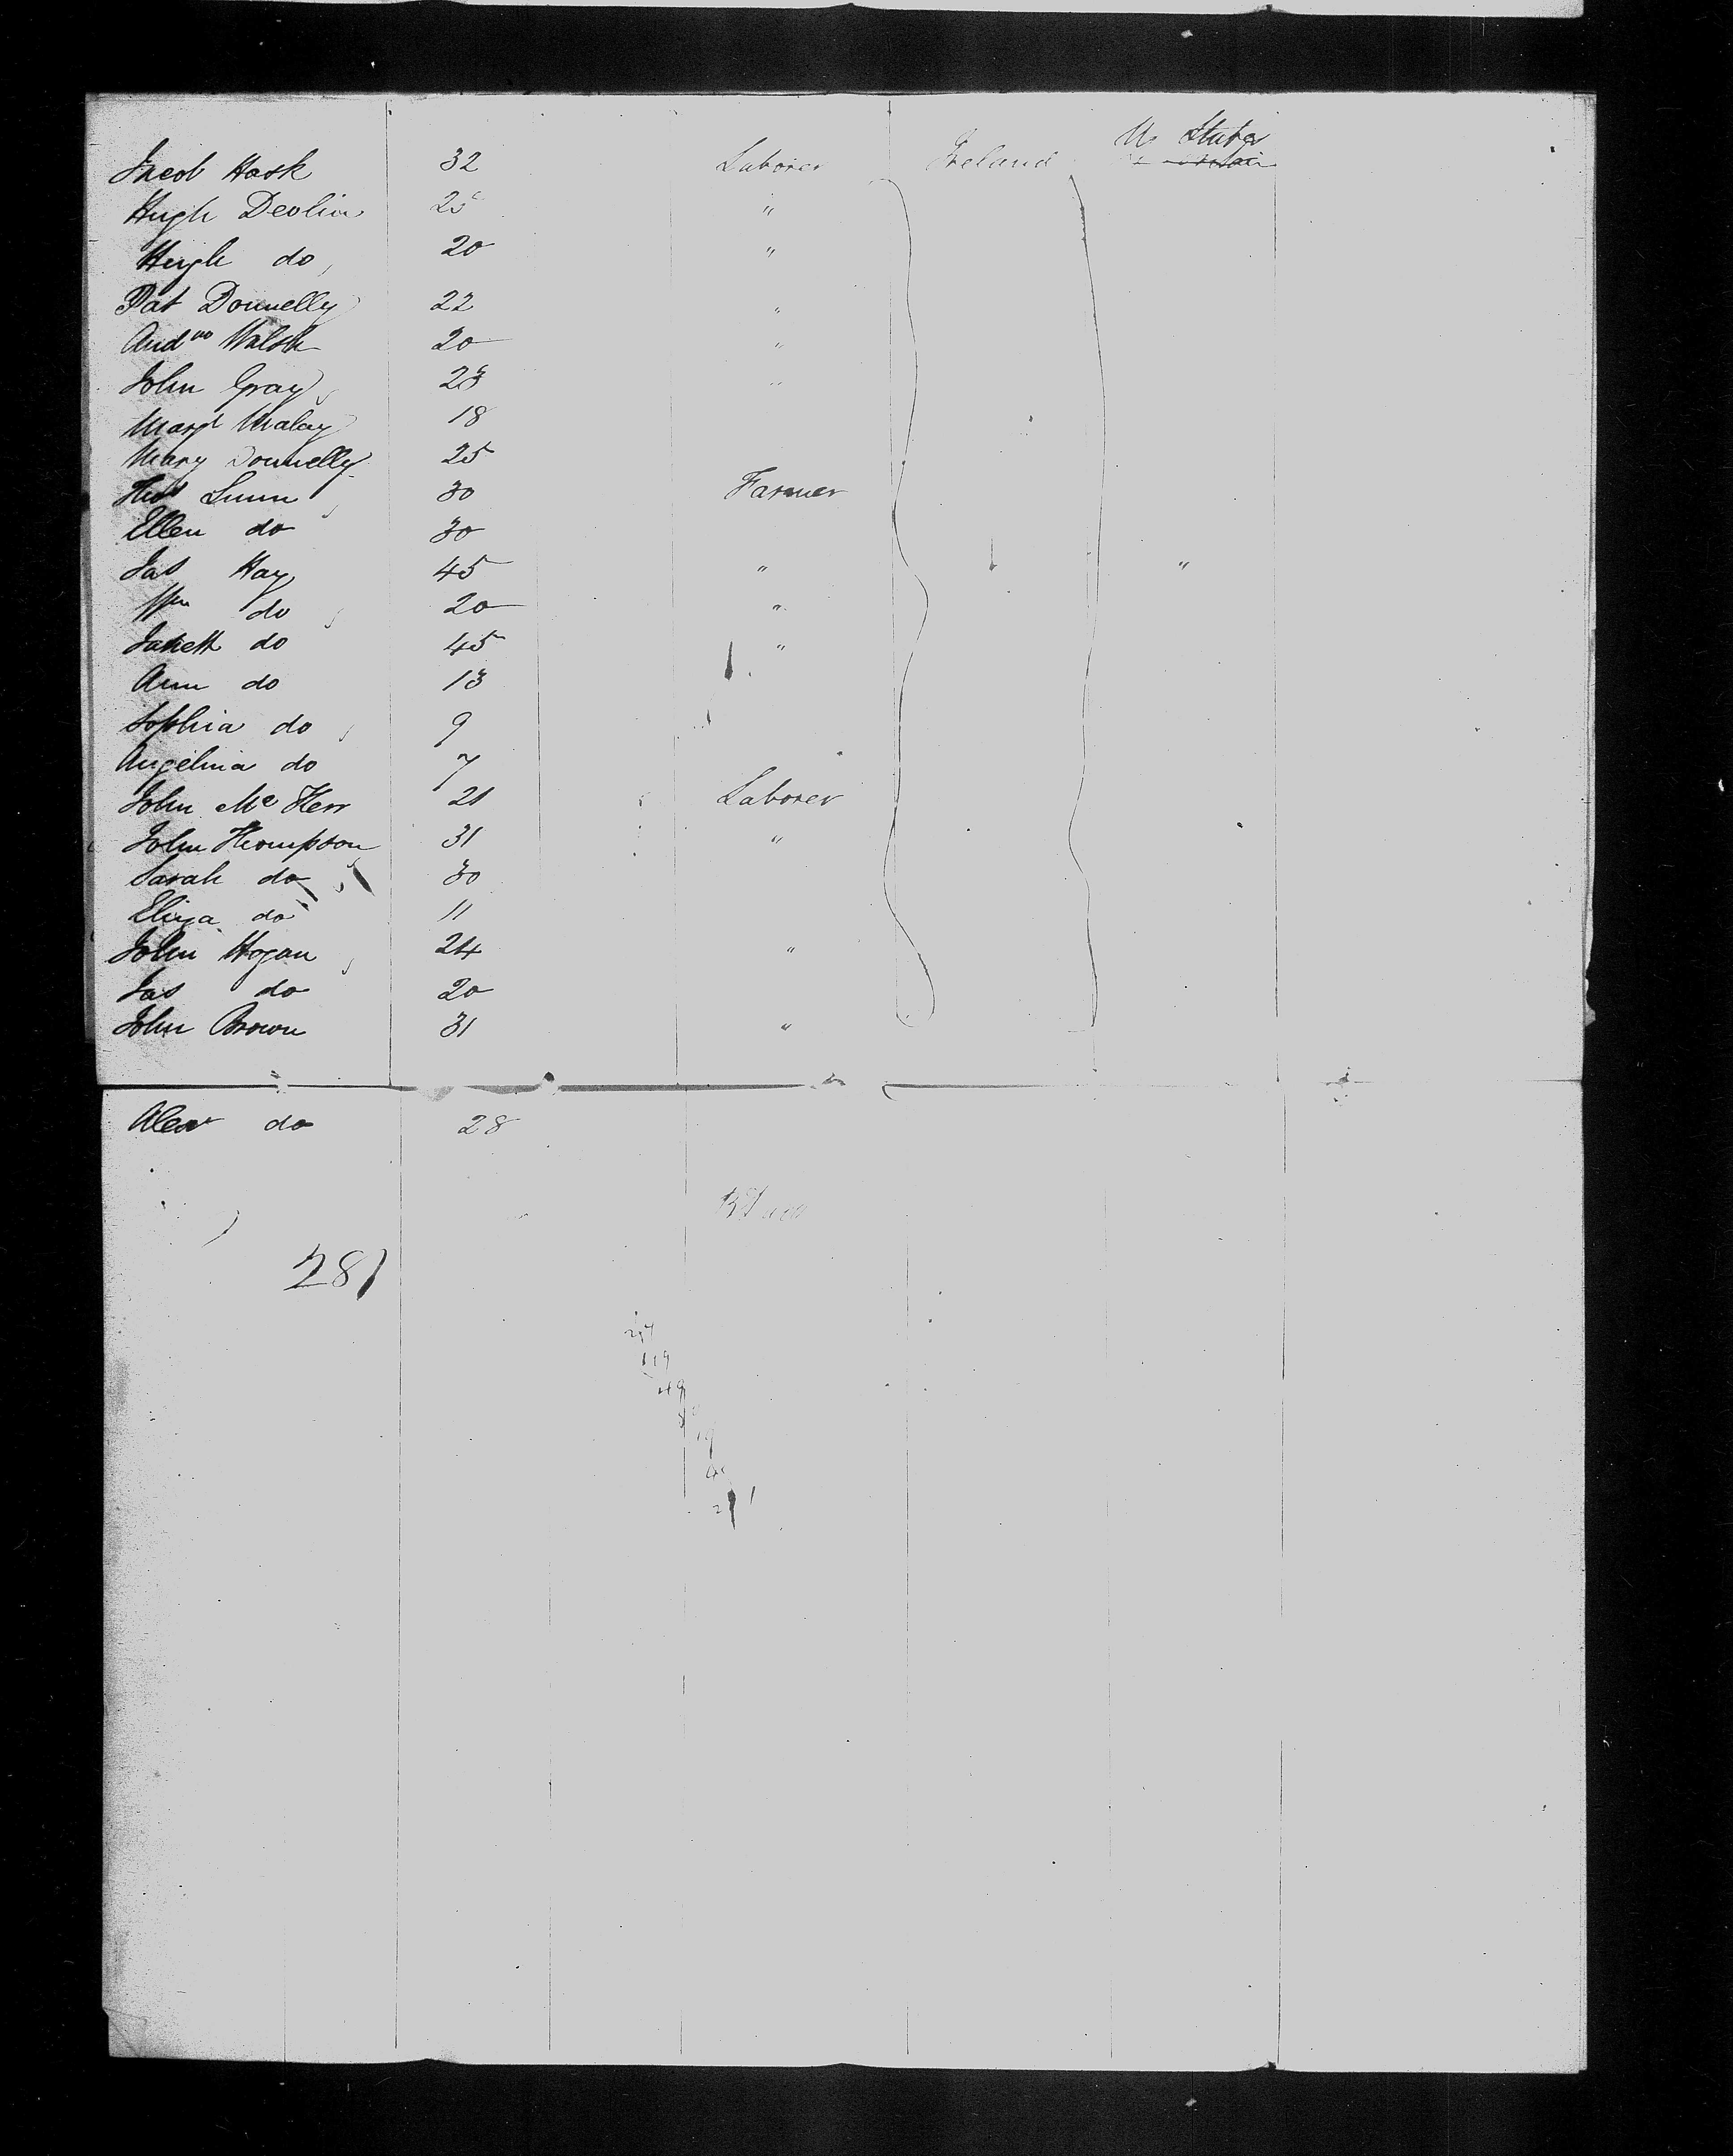 U. States
Jacob Hask 32 Laborer Ireland
Hugh Devlin 25 "
Hugh do 20 "
Pat Donnelly 22 "
Andw Walsh 20 "
John Gray 23 "
Margt Malay 18
Mary Donnelly 25
Thos Lunn 30 Farmer
Ellen do 30
Jas Hay 45 " "
Wm do 20 "
Janett do 45 "
Ann do 13
Sophia do 9
Angelina do 7
John Mc Kerr 21 Laborer
John Thompson 31 "
Sarah do 30
Eliza do 11
John Hogan 24 "
Jas do 20
John Brown 31 "
Alexr do 28
281